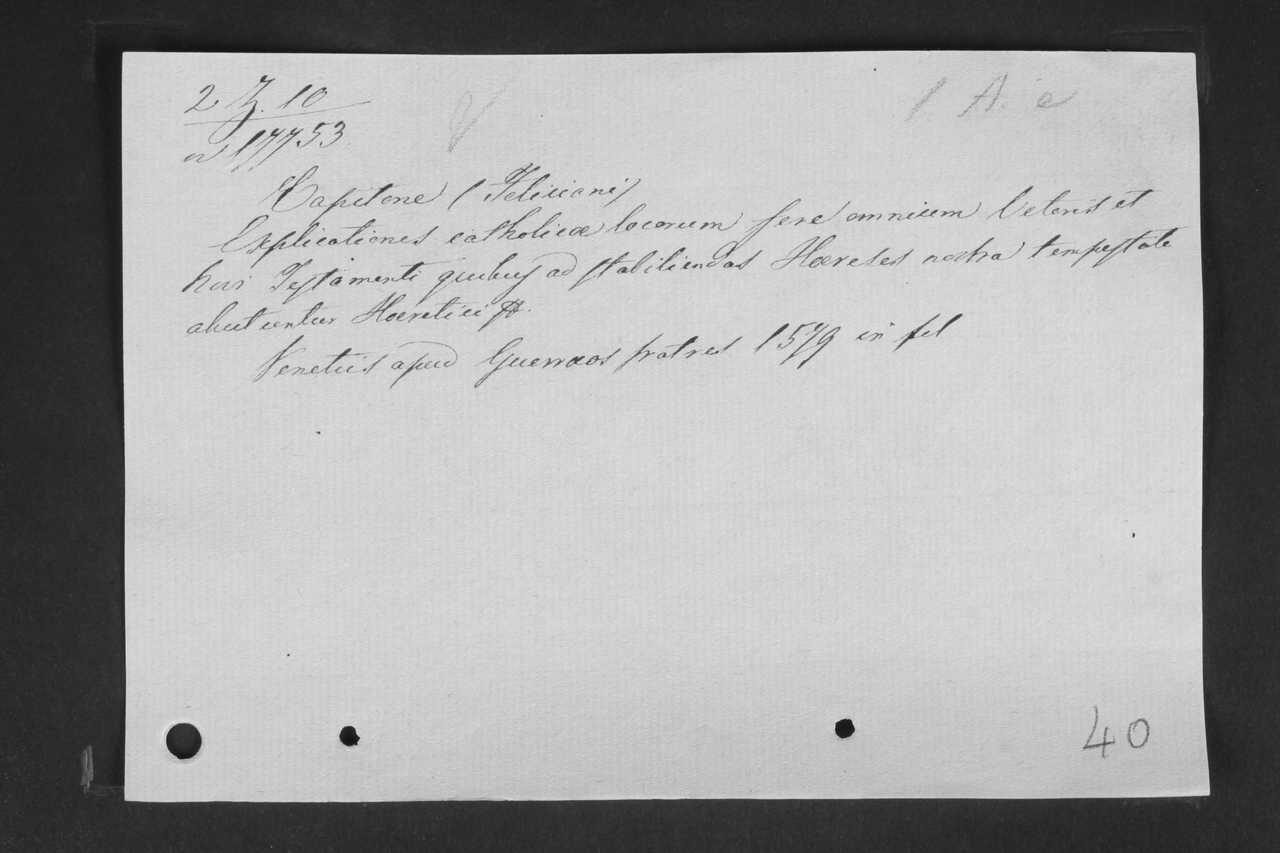 2 Z. 10
1. A. e
n 17753
Capitone (Feliciani)
Explicationes catholicæ locorum fere omnium Veteris et
Novi Testamenti quibus ad stabiliendas Hæreses nostra tempestate
abutuntur Hæretici &.
Venetiis apud Guerræos fratres 1579 in fol
40